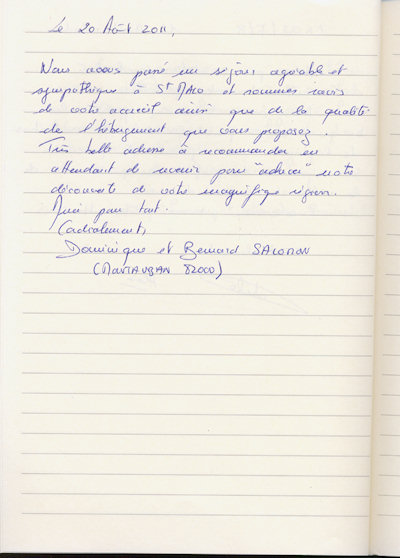 Le 20 Août 2011,
Nous avons passé un séjour agréable et
sympathique à St MALO et sommes ravis
de votre accueil ainsi que de la qualité
de l'hébergement que vous proposez.
Très belle adresse à recommander en
attendant de revenir pour "achever" notre
découverte de votre magnifique région.
Merci pour tout.
Cordialement,
Dominique et Bernard SALOMON
(MONTAUBAN 82000)